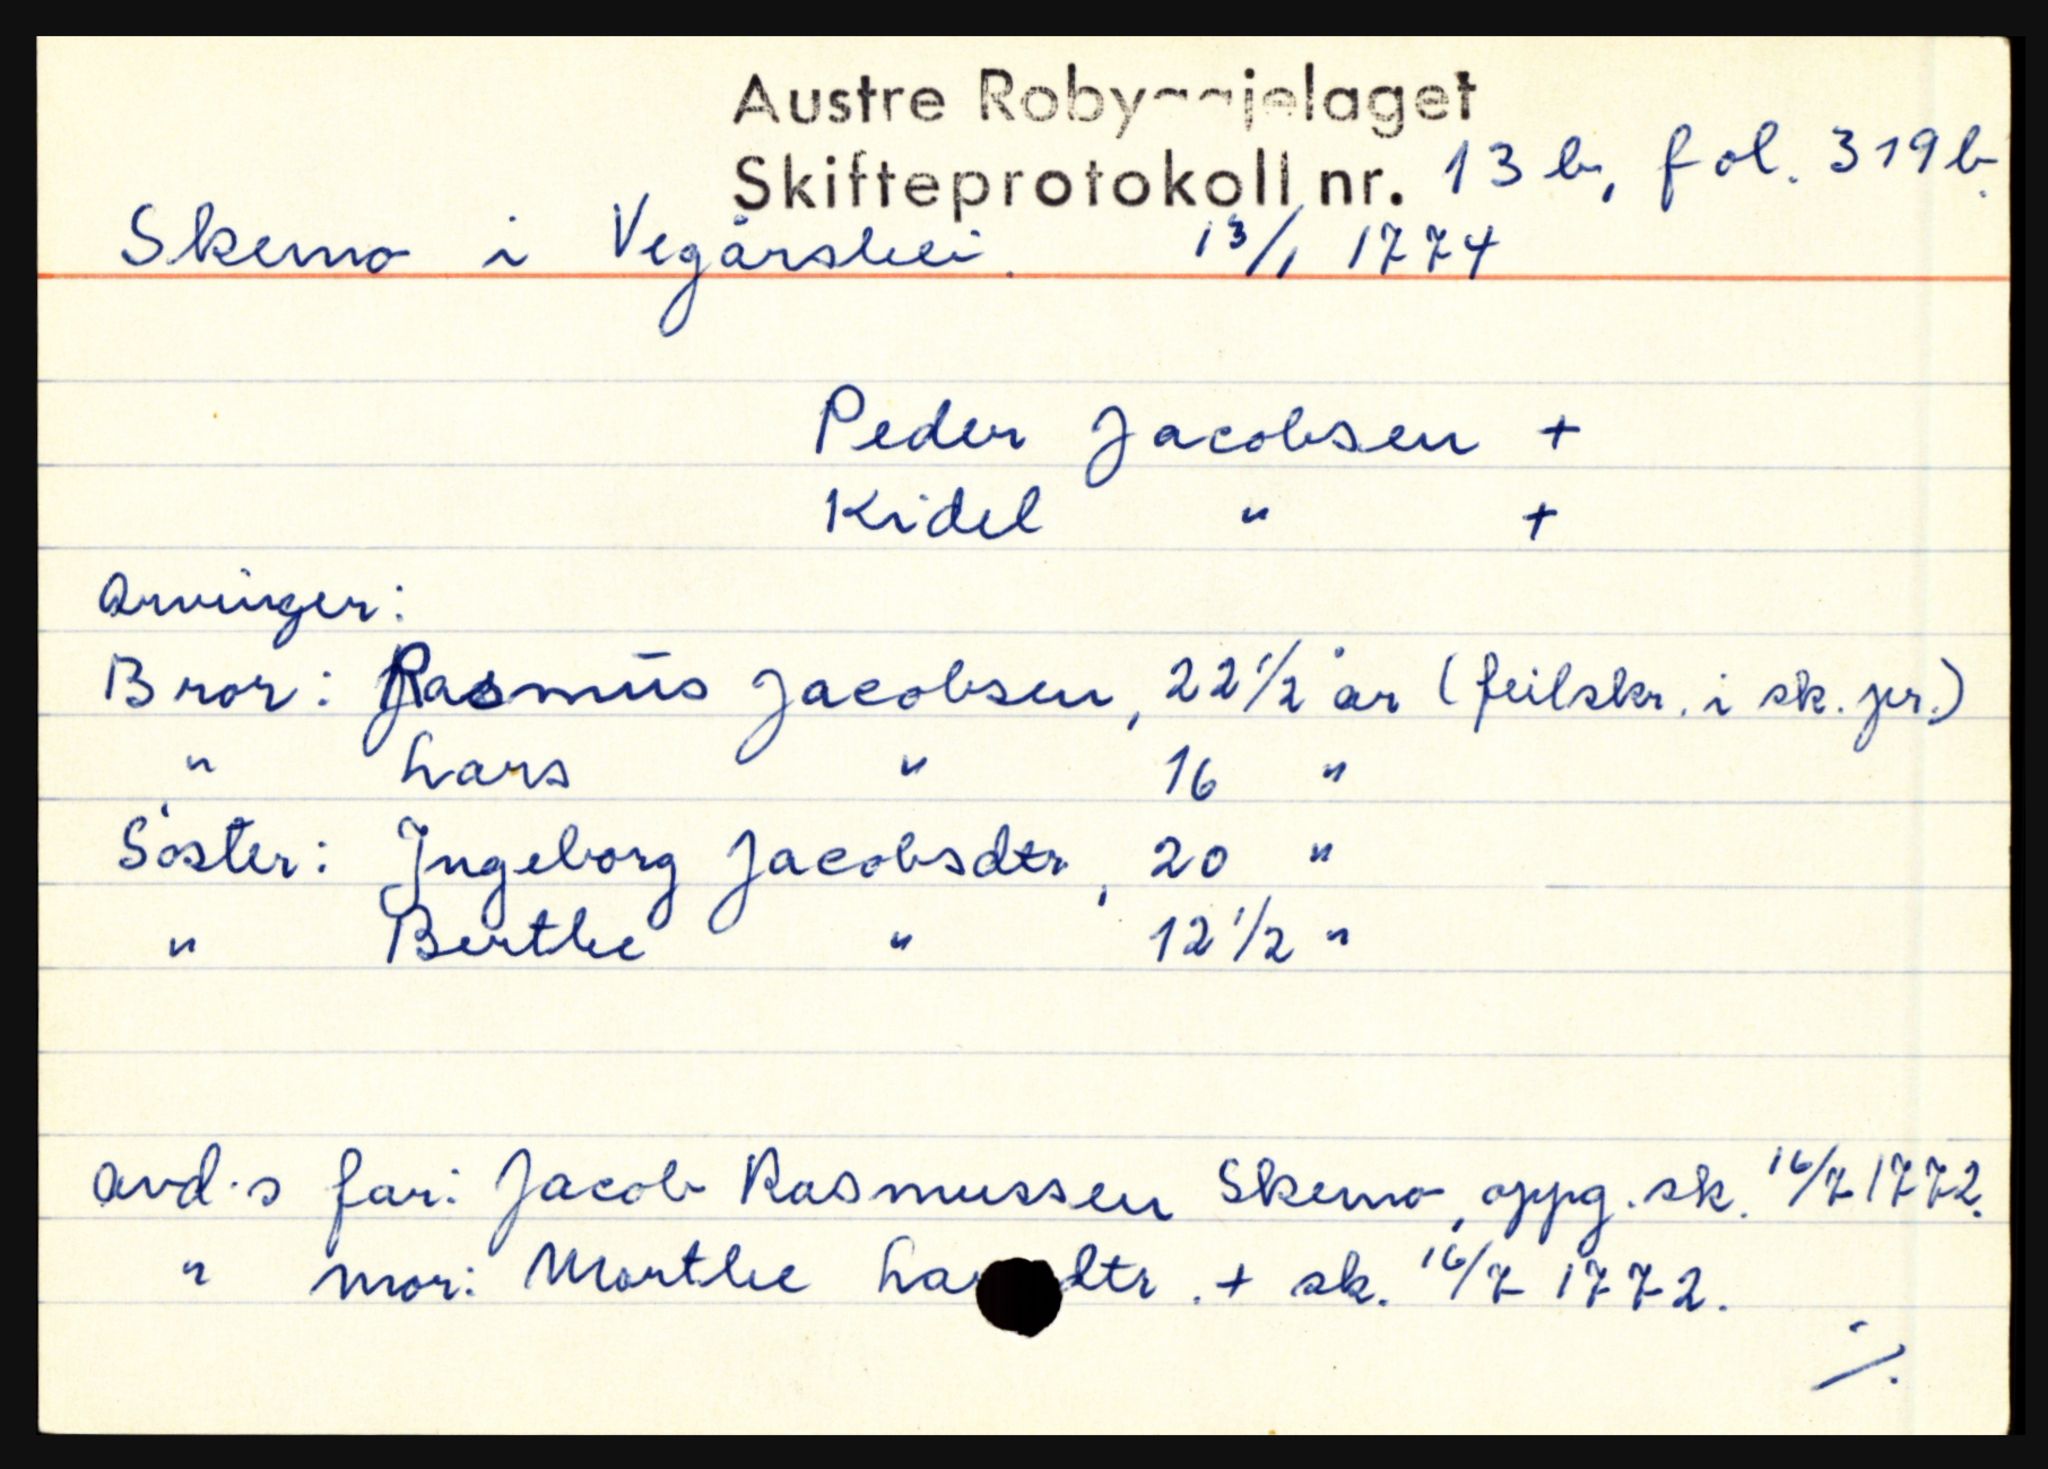 Austre Robyggjelaget
Skifteprotokoll nr. 13 b, fol. 319 b.
Skemo i Vegårshei. 13/1 1774
Peder Jacobsen +
Kidel " +
Arvinger:
Bror: Rasmus Jacobsen, 22 1/2 år (feilskr. i sk. pr.)
" Lars " 16 "
Søster: Ingeborg Jacobsdtr, 20 "
" Berthe " 12 1/2 "
Avd.s far: Jacob Rasmussen Skemo, oppg. sk. 16/7 1772.
" mor: Marthe La dtr. + sk. 16/7 1772.